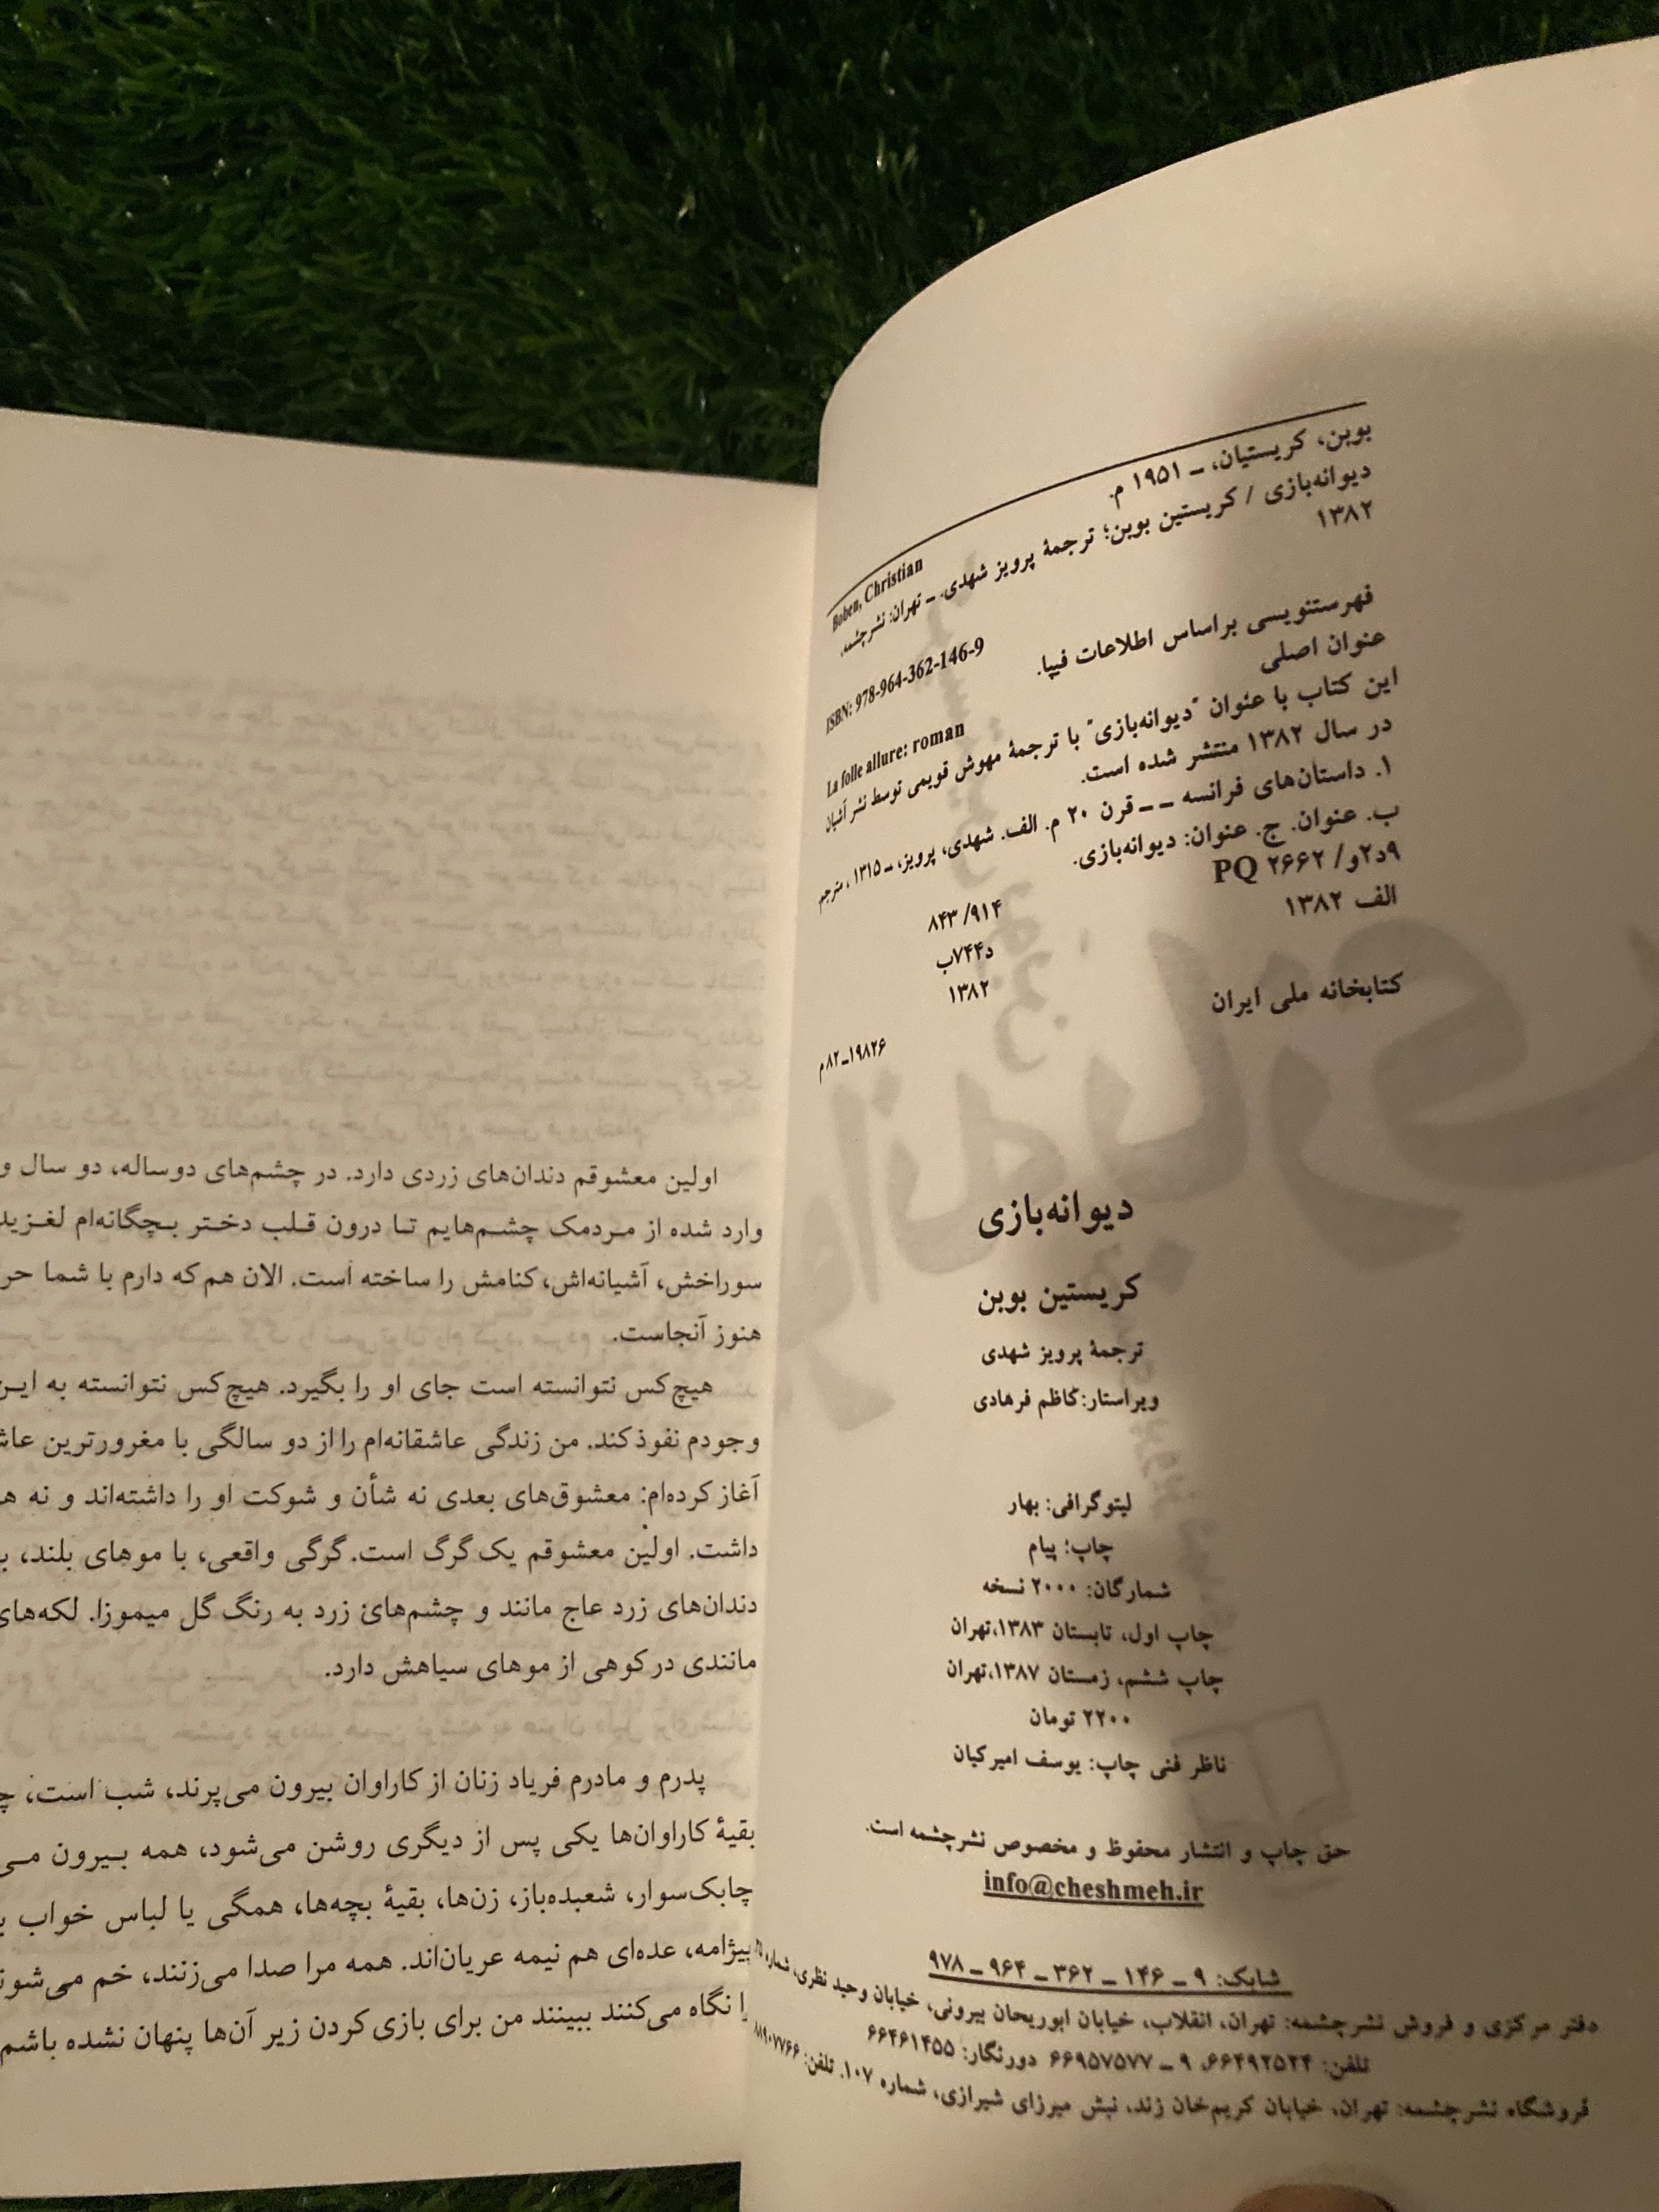 بوبن، کریستیان، ـ ۱۹۵۱ م.
Boben, Christian
دیوانه‌بازی / کریستین بوبن؛ ترجمهٔ پرویز شهدی. ـ تهران: نشرچشمه،
۱۳۸۲
ISBN: 978-964-362-146-9
فهرستنویسی براساس اطلاعات فیپا.
عنوان اصلی
La folle allure: roman
این کتاب با عنوان "دیوانه‌بازی" با ترجمهٔ مهوش قویمی توسط نشر آشیان
در سال ۱۳۸۲ منتشر شده است.
۱. داستان‌های فرانسه ـ ـ قرن ۲۰ م. الف. شهدی، پرویز، ـ ۱۳۱۵ ، مترجم
ب. عنوان. ج. عنوان: دیوانه‌بازی.
۹د۲و/ ۲۶۶۲ PQ
۸۴۳/ ۹۱۴
الف ۱۳۸۲
د۷۴۴ب
۱۳۸۲
کتابخانه ملی ایران
۱۹۸۲۶ـ۸۲م
دیوانه‌بازی
کریستین بوبن
ترجمهٔ پرویز شهدی
ویراستار:کاظم فرهادی
لیتوگرافی: بهار
چاپ: پیام
شمارگان: ۲۰۰۰ نسخه
چاپ اول، تابستان ۱۳۸۳،تهران
چاپ ششم، زمستان ۱۳۸۷،تهران
۲۲۰۰ تومان
ناظر فنی چاپ: یوسف امیرکیان
حق چاپ و انتشار محفوظ و مخصوص نشرچشمه است.
info@cheshmeh.ir
شابک: ۹ ـ ۱۴۶ ـ ۳۶۲ ـ ۹۶۴ ـ ۹۷۸
دفتر مرکزی و فروش نشرچشمه: تهران، انقلاب، خیابان ابوریحان بیرونی، خیابان وحید نظری، شماره
تلفن: ۶۶۴۹۲۵۲۴، ۹ ـ ۶۶۹۵۷۵۷۷ دورنگار: ۶۶۴۶۱۴۵۵
فروشگاه نشرچشمه: تهران، خیابان کریم‌خان زند، نبش میرزای شیرازی، شماره ۱۰۷. تلفن: ۸۸۹۰۷۷۶۶
اولین معشوقم دندان‌های زردی دارد. در چشم‌های دوساله، دو سال و
وارد شده از مردمک چشم‌هایم تا درون قلب دختر بچگانه‌ام لغزید
سوراخش، آشیانه‌اش، کنامش را ساخته است. الان هم که دارم با شما
هنوز آنجاست.
هیچ‌کس نتوانسته است جای او را بگیرد. هیچ‌کس نتوانسته به این
وجودم نفوذ کند. من زندگی عاشقانه‌ام را از دو سالگی با مغرورترین
آغاز کرده‌ام: معشوق‌های بعدی نه شأن و شوکت او را داشته‌اند و نه
داشت. اولین معشوقم یک گرگ است. گرگی واقعی، با موهای بلند،
دندان‌های زرد عاج مانند و چشم‌های زرد به رنگ گل میموزا. لکه‌های
مانندی در کوهی از موهای سیاهش دارد.
پدرم و مادرم فریاد زنان از کاراوان بیرون می‌پرند، شب است،
بقیهٔ کاراوان‌ها یکی پس از دیگری روشن می‌شود، همه بیرون
چابک‌سوار، شعبده‌باز، زن‌ها، بقیهٔ بچه‌ها، همگی یا لباس خواب
پیژامه، عده‌ای هم نیمه عریان‌اند. همه مرا صدا می‌زنند، خم
را نگاه می‌کنند ببینند من برای بازی کردن زیر آن‌ها پنهان نشده باشم